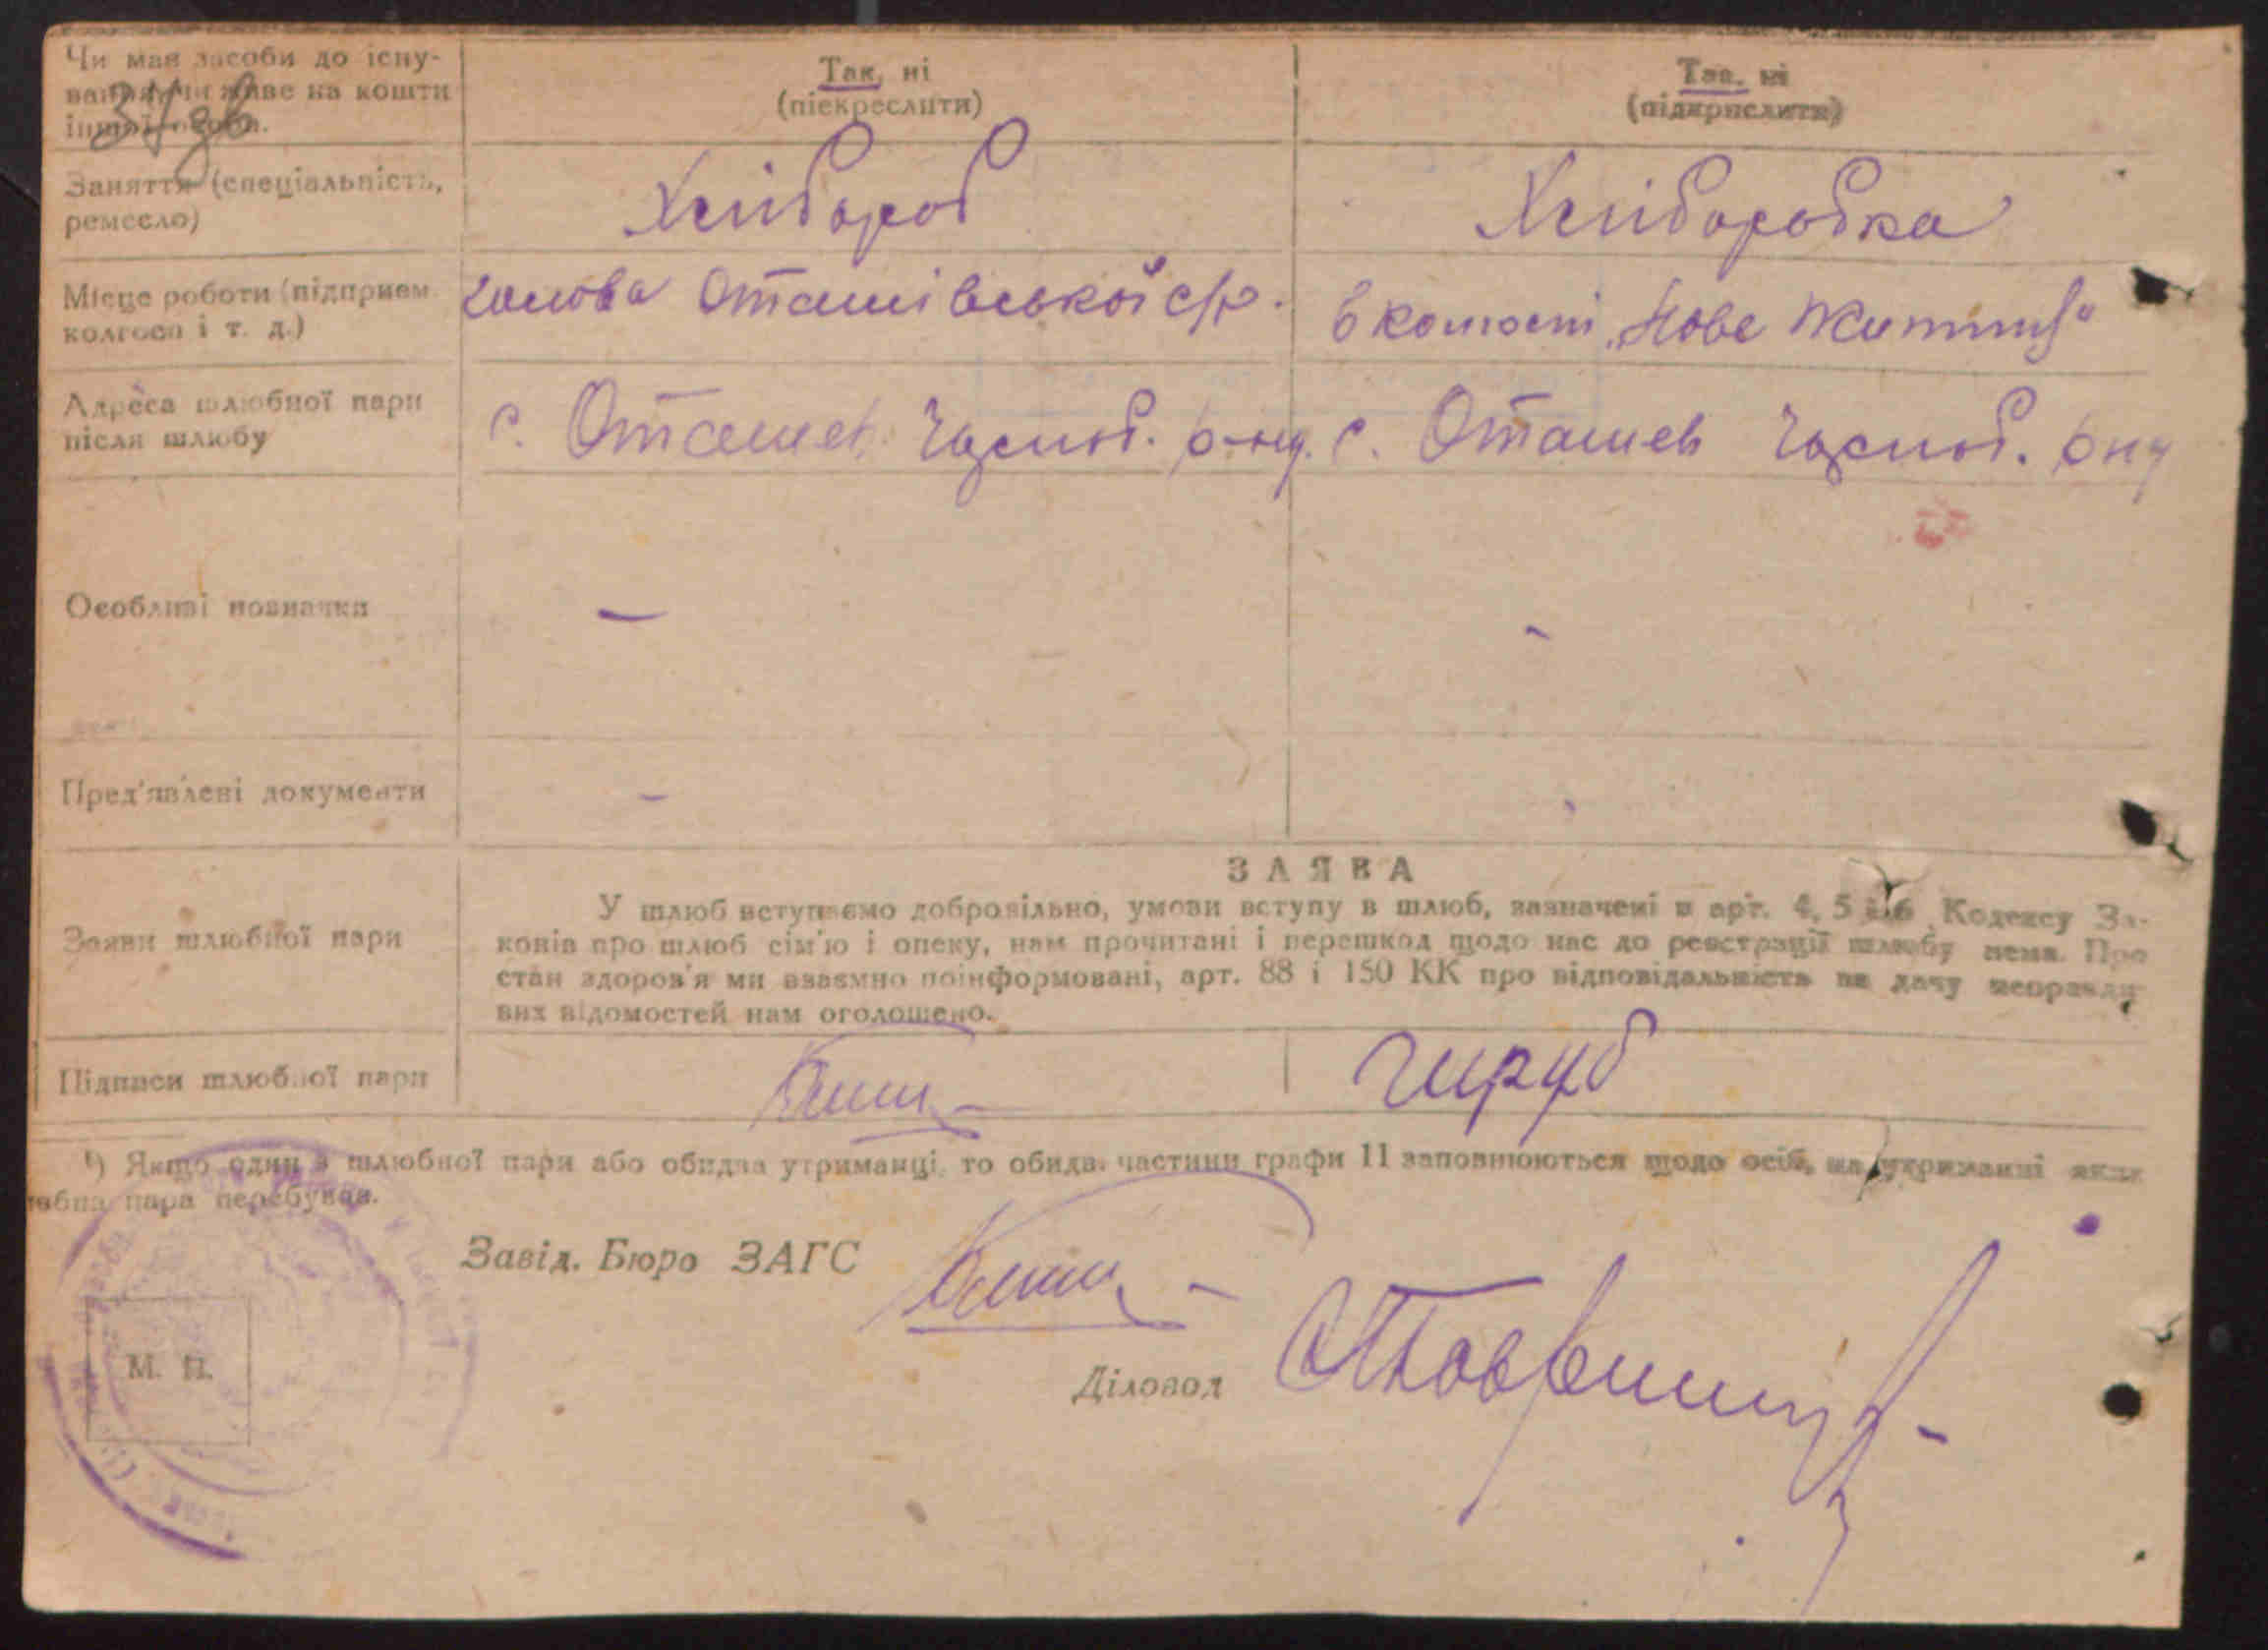 Чи має засоби до існу-
вання чи живе на кошти
іншої особи.
34 зв
Так, ні
(піекреслити)
Так, ні
(підкрислити)
Заняття (спеціальність,
ремесло)
Хлібороб
Хліборобка
Місце роботи (підприєм.
колгосп і т. д.)
голова Оташівської с/р.
в колгоспі „Нове Життя"
Адреса шлюбної пари
після шлюбу
с. Оташев р-ну.
с. Оташев рну
Особливі позначки
—
-
Пред'явлені документи
-
Заяви шлюбної пари
ЗАЯВА
У шлюб вступаємо добровільно, умови вступу в шлюб, зазначені в арт. 4, 5 і 6 Кодексу За-
конів про шлюб сім'ю і опеку, нам прочитані і перешкод щодо нас до реєстрації шлюбу нема. Про
стан здоров'я ми взаємно поінформовані, арт. 88 і 150 КК про відповідальність за дачу неправди
вих відомостей нам оголошено.
Підписи шлюбної пари
¹) Якщо один з шлюбної пари або обидва утриманці, то обидві частини графи 11 заповнюються щодо осіб, на утриманні яких
пара перебуває.
Завід. Бюро ЗАГС
Діловод
М. П.